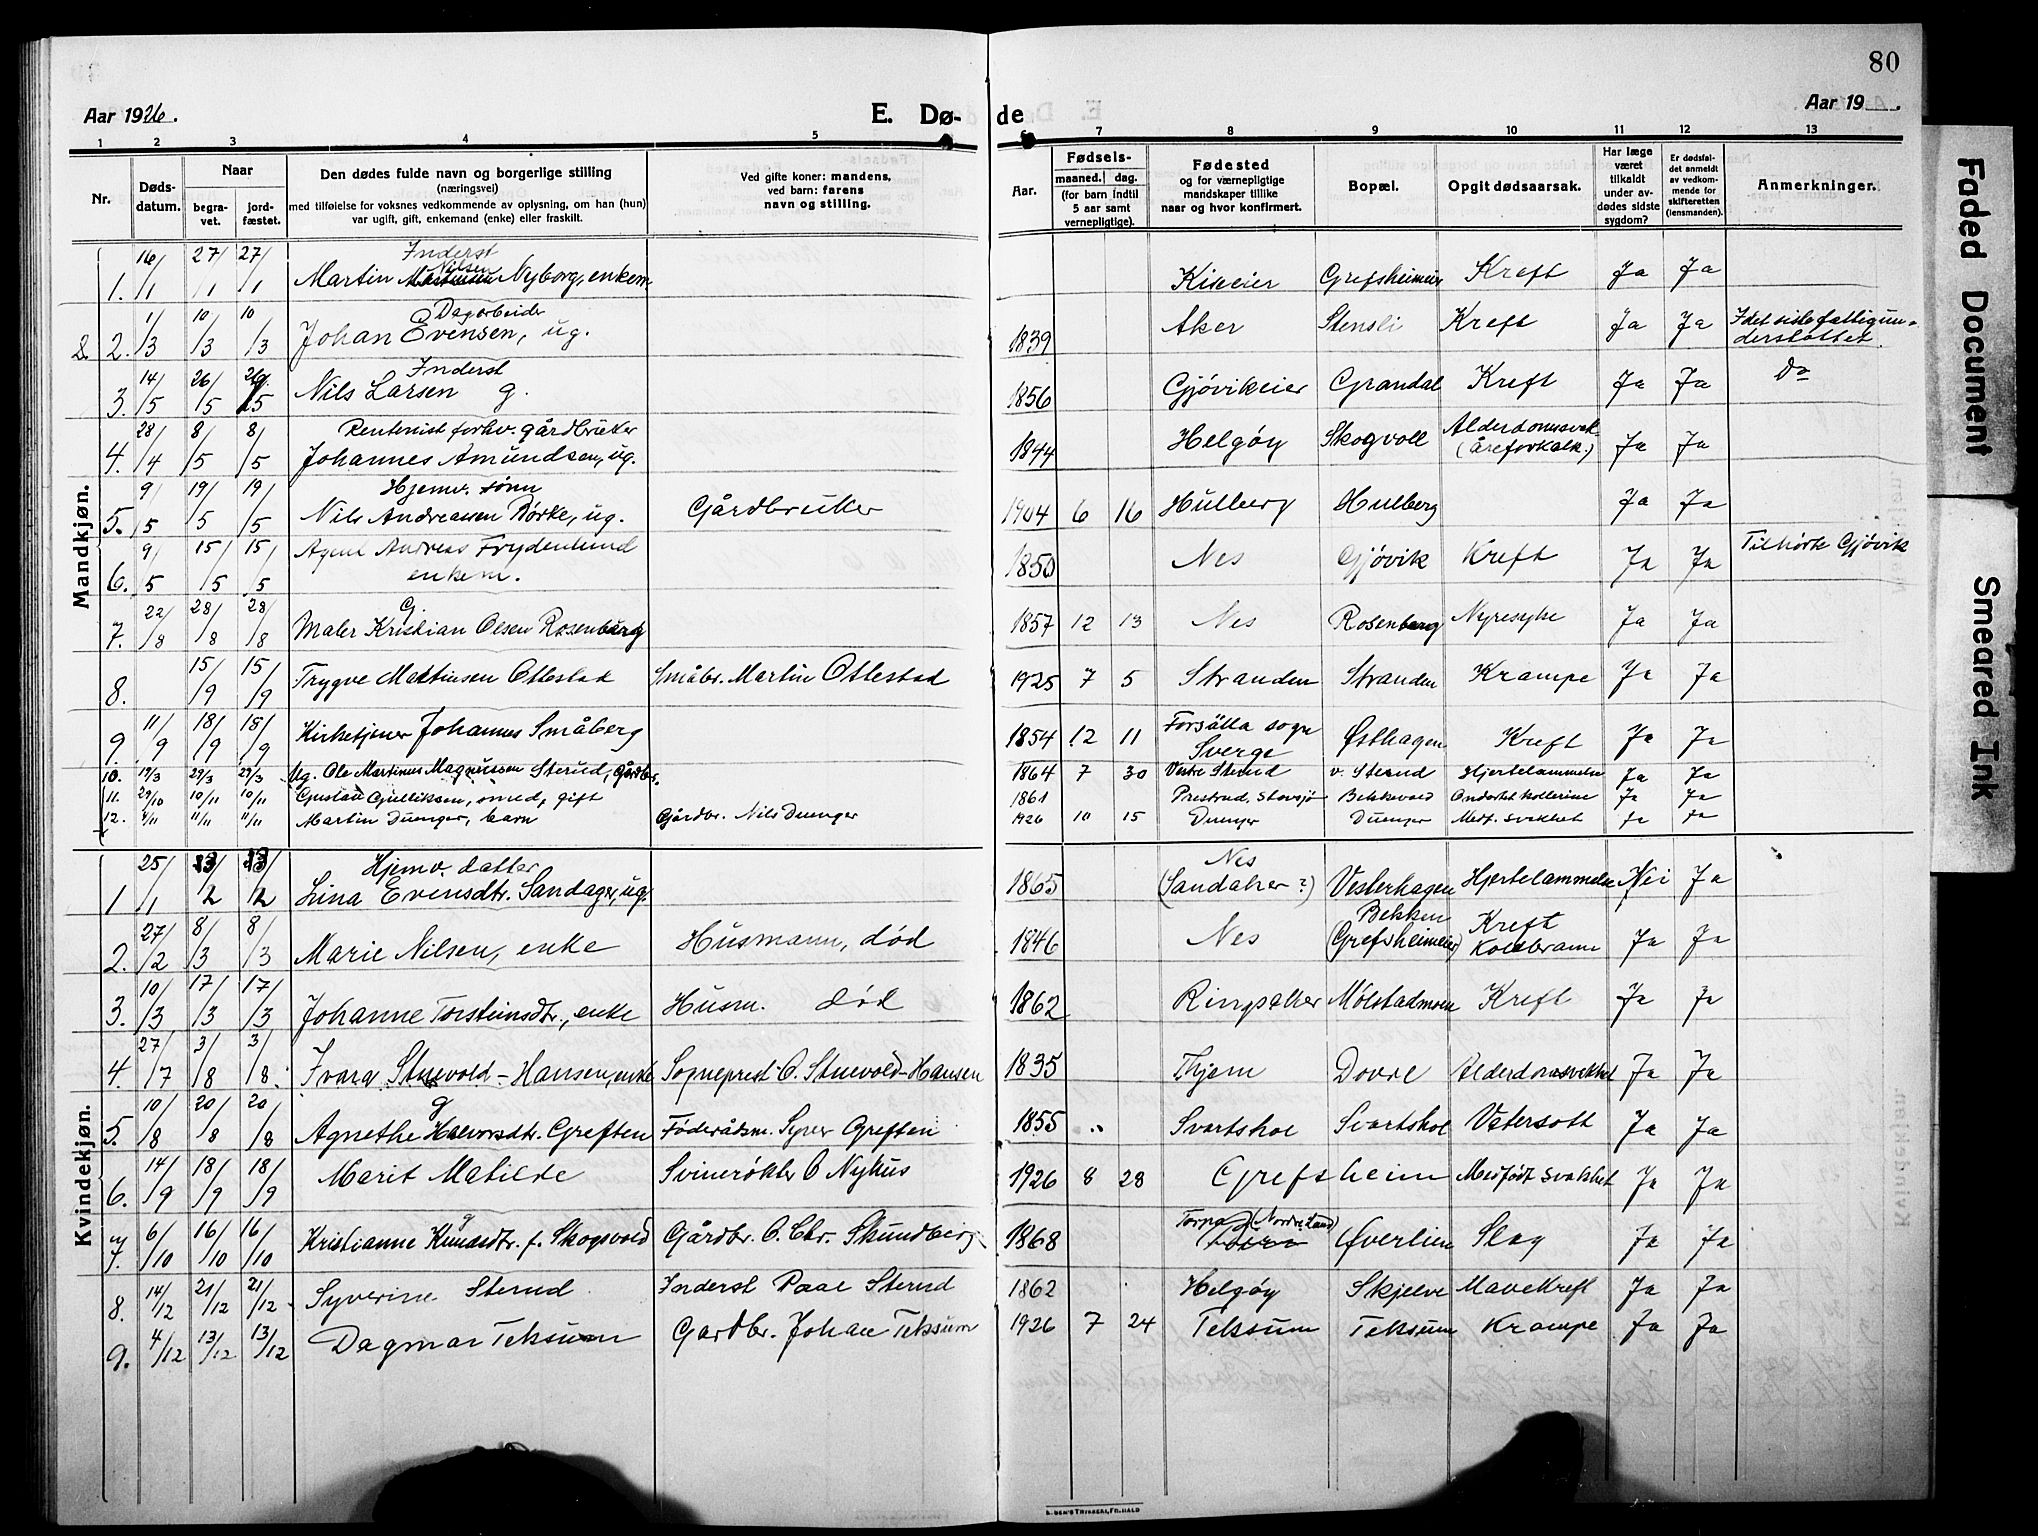 80
Aar 1926.
E. Dø-
de
Aar 19 .
1 2 3 4 5 6 7 8 9 10 11 12 13
Nr.
Døds-
datum.
Naar
begra-
vet.
jord-
fæstet.
Den dødes fulde navn og borgerlige stilling
(næringsvei)
med tilføielse for voksnes vedkommende av oplysning, om han (hun)
var ugift, gift, enkemand (enke) eller fraskilt.
Ved gifte koner: mandens,
ved barn: farens
navn og stilling.
Aar.
Fødsels-
maaned. dag.
(for barn indtil
5 aar samt
vernepligtige).
Fødested
og for værnepligtige
mandskaper tillike
naar og hvor konfirmert.
Bopæl.
Opgit dødsaarsak.
Har læge
været
tilkaldt
under av-
dødes sidste
sygdom?
Er dødsfal-
det anmeldt
av vedkom-
mende for
skifteretten
(lensmanden).
Anmerkninger.
Mandkjøn.
Inderst
Nilsen
1. 16/1 27/1 27/1 Martin Nyborg, enkem. Kiseeier Grefsheimeier Kreft Ja Ja
Dagarbeider
8. 2. 1/3 10/3 10/3 Johan Evensen, ug. 1839 Aker Stensli Kreft Ja Ja I det siste fattigun-
derstøttet.
Inderst
3. 14/5 26/5 26/5 Nils Larsen g. 1856 Gjøvikeier Grandal Kreft Ja Ja Do
Rentenist forhv. gårdbruker
4. 28/4 8/5 8/5 Johannes Amundsen, ug. 1844 Helgøy Skogvoll Alderdomssvak.
(åreforkalk.) Ja Ja
Hjemv. sønn
5. 9/5 19/5 19/5 Nils Andreassen Rørke, ug. Gårdbruker 1904 6 16 Hulberg Hulberg Ja Ja
6. 9/5 15/5 15/5 Agent Andreas Frydenlund
enkem. 1850 Nes Gjøvik Kreft Ja Ja Tilhørte Gjøvik
G.
7. 22/8 28/8 28/8 Maler Kristian Olsen Rosenberg 1857 12 13 Nes Rosenberg Nyresyke Ja Ja
8. 15/9 15/9 Trygve Martinsen Ottestad Småbr. Martin Ottestad 1925 7 5 Stranden Stranden Krampe Ja Ja
9. 11/9 18/9 18/9 Kirketjener Johannes Småberg 1854 12 11 Forsälla sogn
Sverge Østhagen Kreft Ja Ja
10. 19/3 29/3 29/3 Ug. Ole Martinus Magnussen Sterud, Gårdbr. 1864 7 30 Vestre Sterud v. Sterud Hjertelammelse Ja Ja
11. 29/10 10/11 10/11 Gustav Gulliksen, smed, gift 1861 Prestrud, Stavsjø Bekkevold Ondartet kollerine Ja Ja
12. 4/11 11/11 11/11 Martin Duenger, barn Gårdbr. Nils Duenger 1926 10 15 Duenger Duenger Medf. svakhet Ja Ja
Kvindekjøn.
Hjemv. datter
1 25/1 2 2 Lina Evensdtr. Sandager, ug. 1865 Nes
(Sandaker?) Vesterhagen Hjertelammelse Nei Ja
2. 27/2 8/3 8/3 Marie Nilsen, enke Husmann, død 1846 Nes Bekken
(Grefsheimeier) Kreft
Koldbrann Ja Ja
3. 10/3 17/3 17/3 Johanne Torsteinsdtr., enke Husm. død 1862 Ringsaker Mølstadmoen Kreft Ja Ja
4. 27/7 3/8 3/8 Ivara Stuevold-Hansen, enke Sogneprest O. Stuevold-Hansen 1835 Thjem Dovre Alderdomssvakhet Ja Ja
g
5. 10/8 20/8 20/8 Agnethe Halvorsdtr. Greften Føderådsm. Syver Greften 1855 " Svartskol Svartskol Vatersott Ja Ja
6. 14/9 18/9 18/9 Marit Matilde Svinerøkter O Nyhus 1926 8 28 Grefsheim Medfødt svakhet Ja Ja
g
7. 6/10 16/10 16/10 Kristianne Knudsdtr. f. Skogsvold Gårdbr. O. Chr. Skundberg 1868 Torpa (Nordre Land) Øverlien Slag Ja Ja
8. 14/12 21/12 21/12 Syverine Sterud Inderst Paal Sterud 1862 Helgøy Skjelve Mavekreft Ja Ja
9. 4/12 13/12 13/12 Dagmar Teksum Gardbr. Johan Teksum 1926 7 24 Teksum Teksum Krampe Ja Ja
Faded Document
Smeared Ink